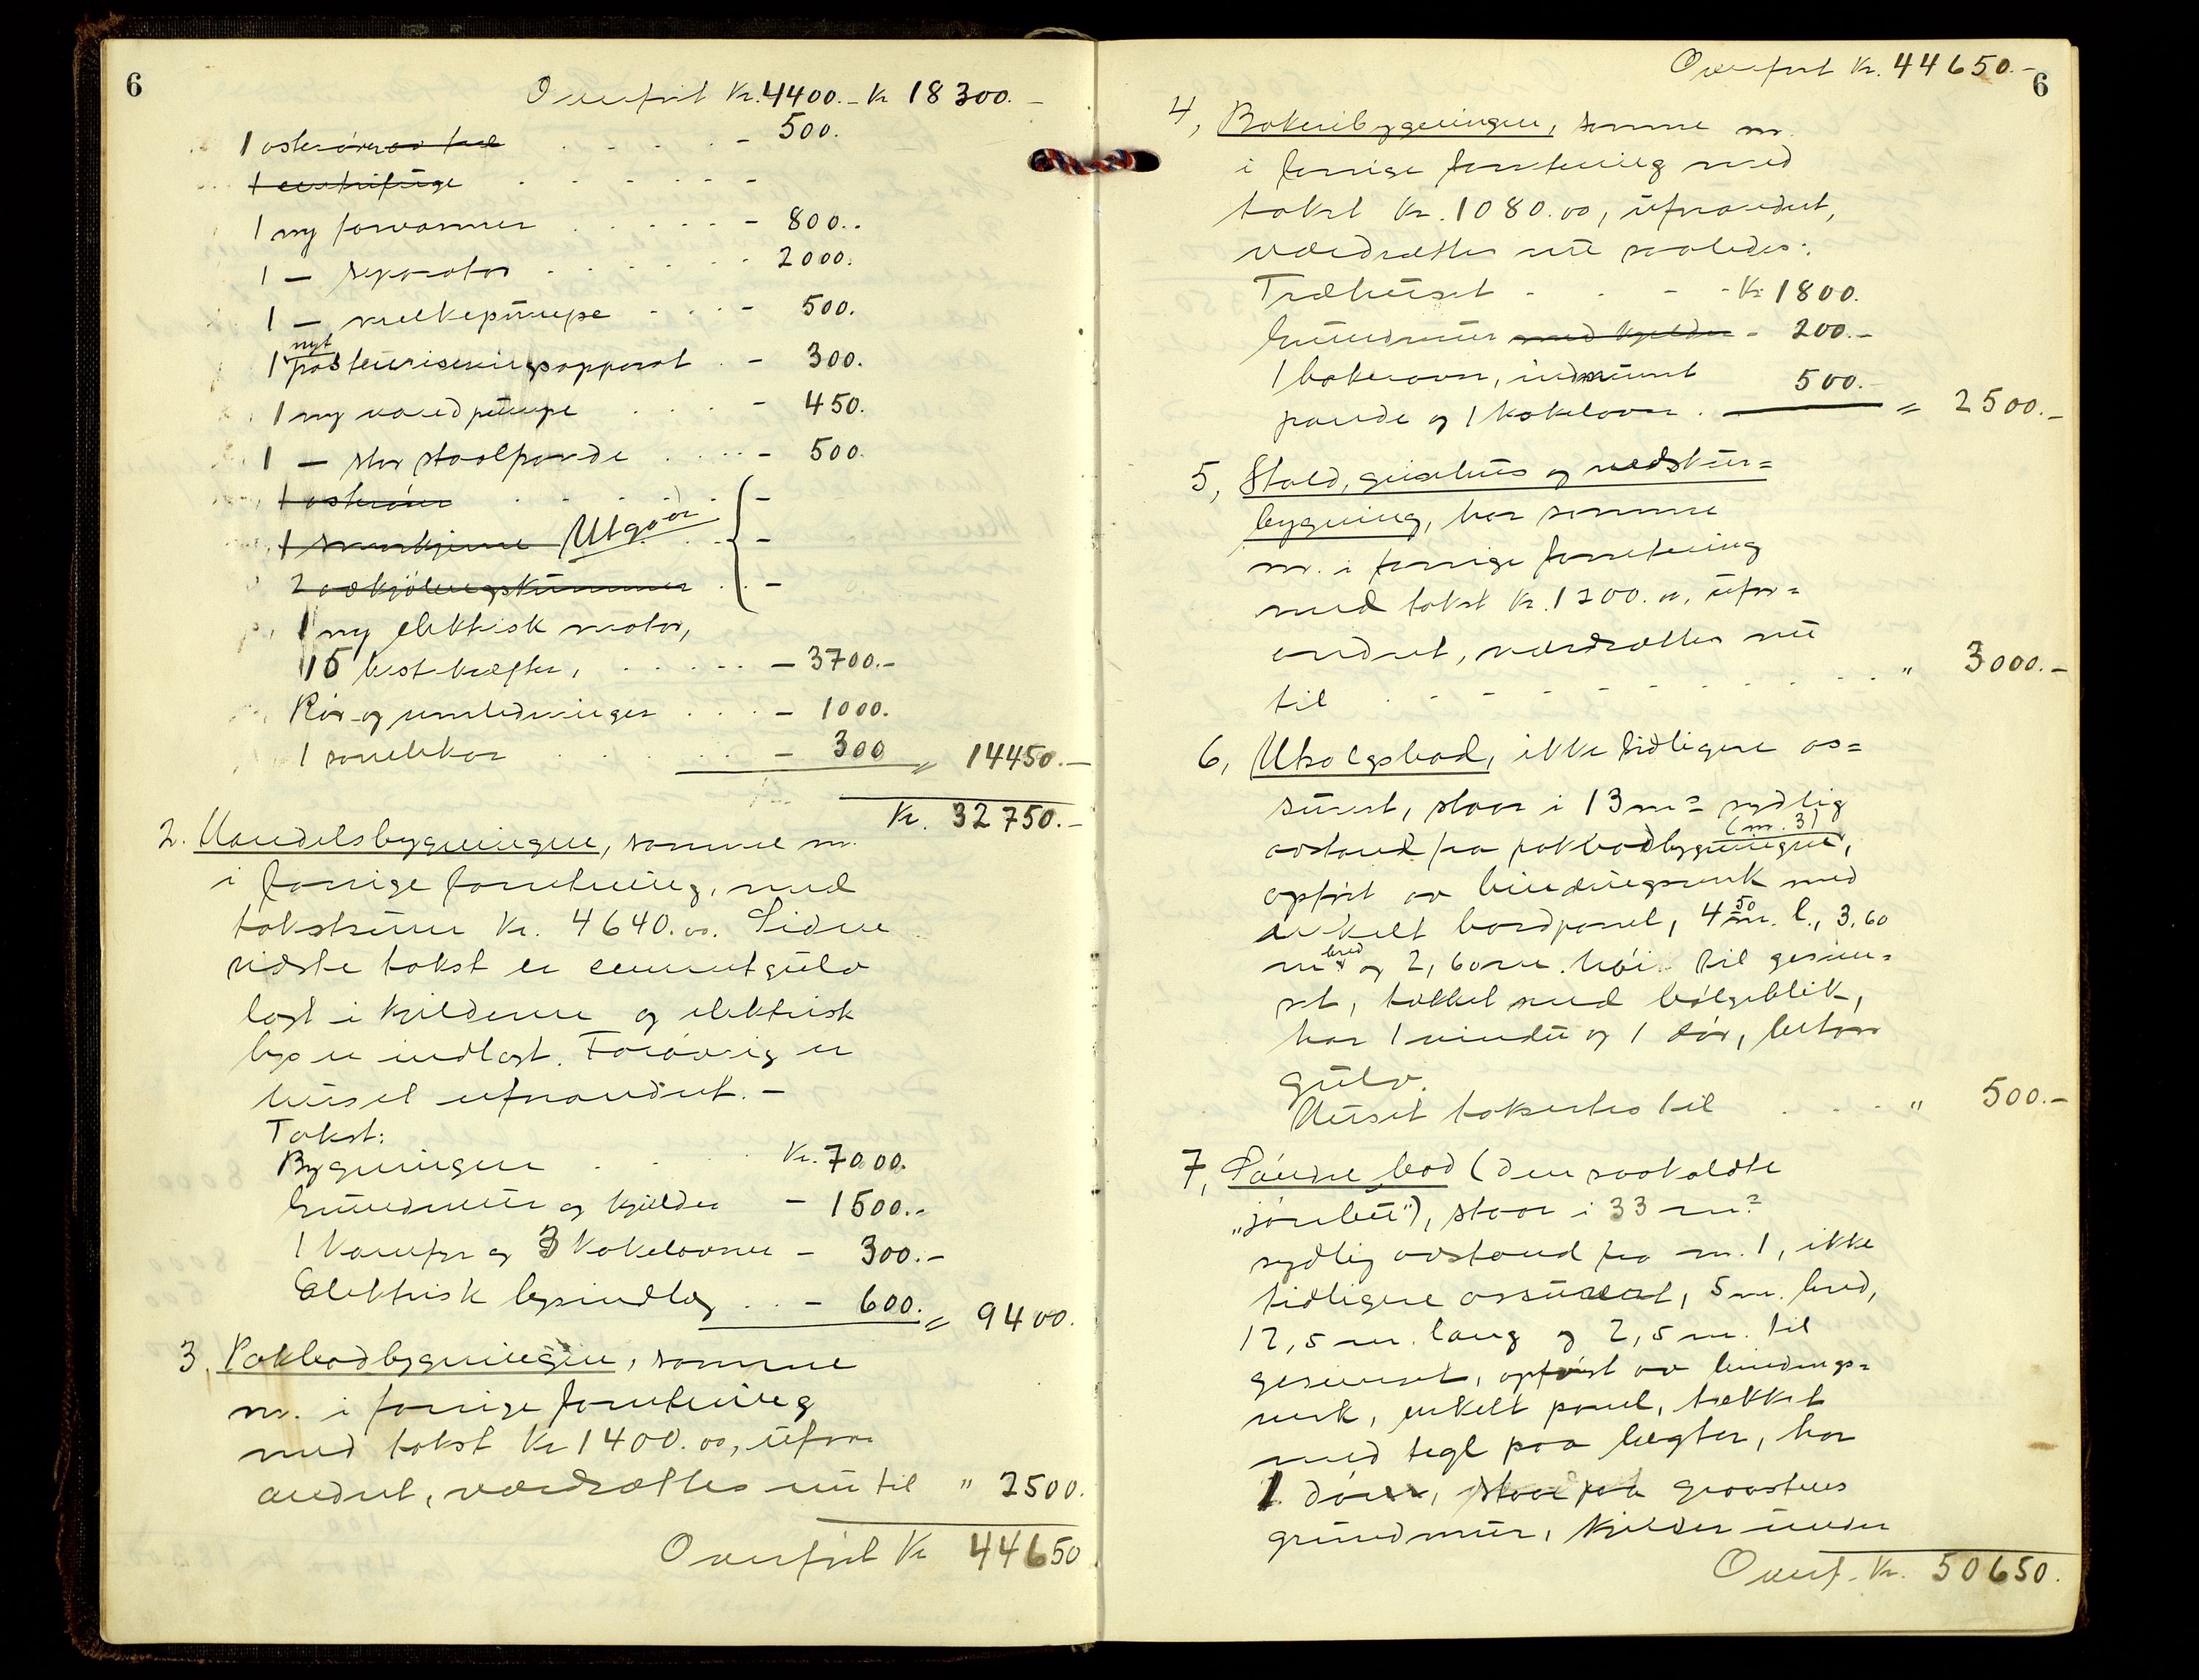 6
Overført Kr. 4400.- Kr 18300.-
1 osterører - 500.
1 centrifuge . . . . . . -
1 ny forvarmer . . . . . - 800..
1 — separator . . . . . . 2000.
1 — melkepumpe . . . - 500.
1 nyt pasteuriseringsapparat . - 300.
1 ny vandpumpe . . . - 450.
1 — stor staalpande . . . . - 500.
1 osterører . . . . . . -
1 smørkjerne Utgaar . . -
2 avkjølingskummer . . -
1 ny elektrisk motor,
15 hestkræfter, . . . . . . - 3700.-
Rør og rørledninger . . . - 1000.
1 samlekar . . . . . - 300 " 14450.-
Kr. 32750.-
2. Handelsbygningen, samme nr.
i forrige forretning, med
takstsum Kr. 4640.00. Siden
sidste takst er cementgulv
lagt i kjelderen og elektrisk
lys er indlagt. Forøvrig er
huset uforandret. -
Takst:
Bygningen . . . Kr. 7000.
Grundmur og kjelder - 1500.-
1 komfyr og 3 kakelovner - 300.-
Elektrisk lysindlæg . . - 600. " 9400.
3. Pakbodbygningen, samme
nr. i forrige forretning
med takst Kr 1400.00, ufor-
andret, værdsættes nu til " 2500.
Overført Kr 44650
Overført Kr. 44650.-
6
4, Bakeribygningen, samme nr.
i forrige forretning med
takst Kr. 1080.00, uforandret,
værdsættes nu saaledes:
Træhuset - - - - Kr 1800.
Grundmur med kjelder - 200.-
1 bakerovn, indmuret
pande og 1 kakelovn . 500.- " 2500.-
5, Stald, grisehus og vedskur=
bygning, har samme
nr. i forrige forretning
med takst Kr. 1200.00, ufor=
andret, værdsættes nu
til . . . . . . . . . . " 3000.-
6, Utsalgsbod, ikke tidligere as=
surert, staar i 13 m= sydlig
avstand fra pakbodbygningen (nr. 3),
opført av bindingsverk med
enkelt bordpanel, 4,50 m. l., 3,60
m bred og 2,60 m. høi til gesim=
set, tækket med bølgeblik,
har 1 vindu og 1 dør, beton
gulv.
Huset takseres til . . . . " 500.-
7, Søndre bod (den saakaldte
"Jønbu"), staar i 33 m=
sydlig avstand fra nr. 1, ikke
tidligere assurert, 5 m. bred,
12,5 m. lang og 2,5 m. til
gesimset, opført av bindings=
verk, enkelt panel, tækket
med tegl paa lægter, har
1 dør, staar paa graastens
grundmur, kjelder under
Overf. Kr. 50650.